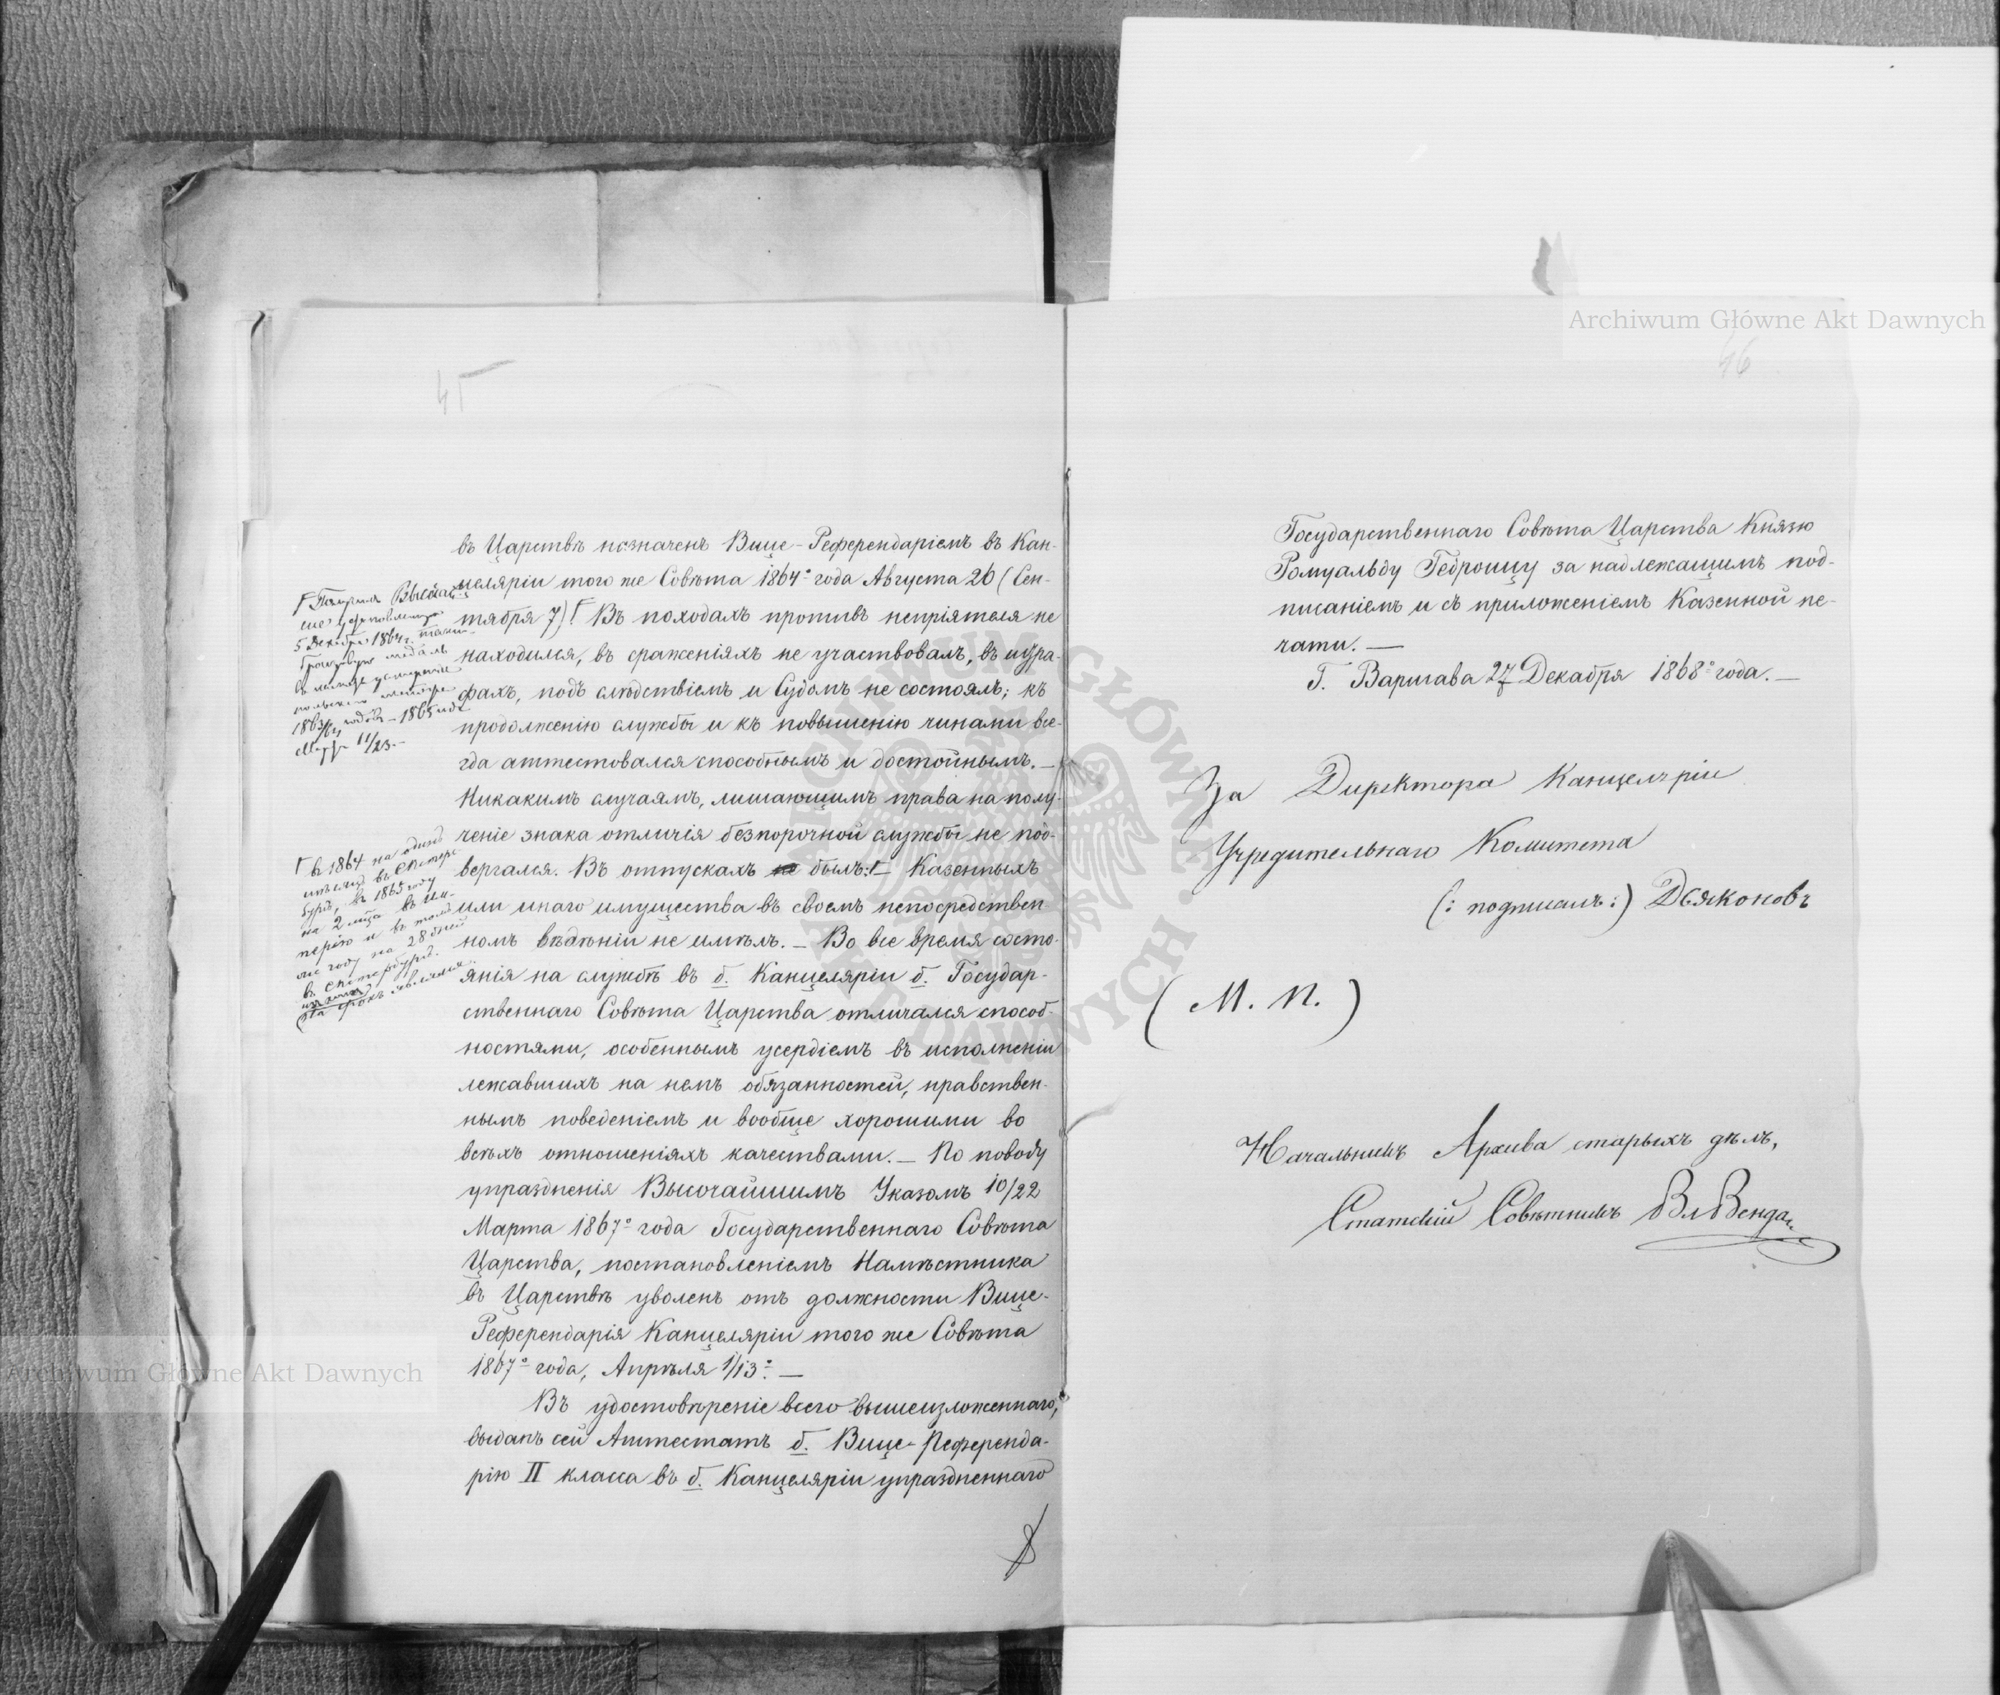 45
въ Царствѣ назначенъ Вице-Референдаріемъ въ Кан-
целяріи того же Совѣта 1864º года Августа 26 (Сен-
тября 7)! Въ походахъ противъ непріятеля не
находился, въ сраженіяхъ не участвовалъ, въ штра-
фахъ, подъ слѣдствіемъ и Судомъ не состоялъ; къ
продолженію службы и къ повышенію чинами все-
гда аттестовался способнымъ и достойнымъ. —
Никакимъ случаямъ, лишающимъ права на полу-
ченіе знака отличія безпорочной службы не под-
вергался. Въ отпускахъ не былъ: Казенныхъ
или инаго имущества въ своемъ непосредствен-
номъ вѣдѣніи не имѣлъ. — Во все время состо-
янія на службѣ въ б. Канцеляріи б. Государ-
ственнаго Совѣта Царства отличался способ-
ностями, особеннымъ усердіемъ въ исполненіи
лежавшихъ на немъ обязанностей, нравствен-
нымъ поведеніемъ и вообще хорошими во
всѣхъ отношеніяхъ качествами. — По поводу
упраздненія Высочайшимъ Указомъ 10/22
Марта 1867º года Государственнаго Совѣта
Царства, постановленіемъ Намѣстника
въ Царствѣ уволенъ отъ должности Вице-
Референдарія Канцеляріи того же Совѣта
1867º года, Апрѣля 1/13º. —
Въ удостовѣреніе всего вышеизложеннаго,
выданъ сей Аттестатъ б. Вице-Референда-
рію II класса въ б. Канцеляріи упраздненнаго
Высочай-
5 Декабря 1864 г.
бронзовую медаль
польскаго мятежа
1863/64 годовъ — 1865
Марта 11/23. —
въ 1864 на одинъ
мѣсяцъ въ СПетерс-
бургъ, въ 1865 году
на 2 мѣс. въ Им-
перію и въ томъ
же году на 28 дней
въ СПетербургъ.
на срокъ явился.
46
Государственнаго Совѣта Царства Князю
Ромуальду Гедройцу за надлежащимъ под-
писаніемъ и съ приложеніемъ Казенной пе-
чати. —
Г. Варшава 27 Декабря 1868º года. —
За Директора Канцеляріи
Учредительнаго Комитета
(: подписалъ :) Дьяконовъ
(М. П.)
Начальникъ Архива старыхъ дѣлъ,
Статскій Совѣтникъ
Archiwum Główne Akt Dawnych
Archiwum Główne Akt Dawnych
ARCHIWUM GŁÓWNE AKT DAWNYCH